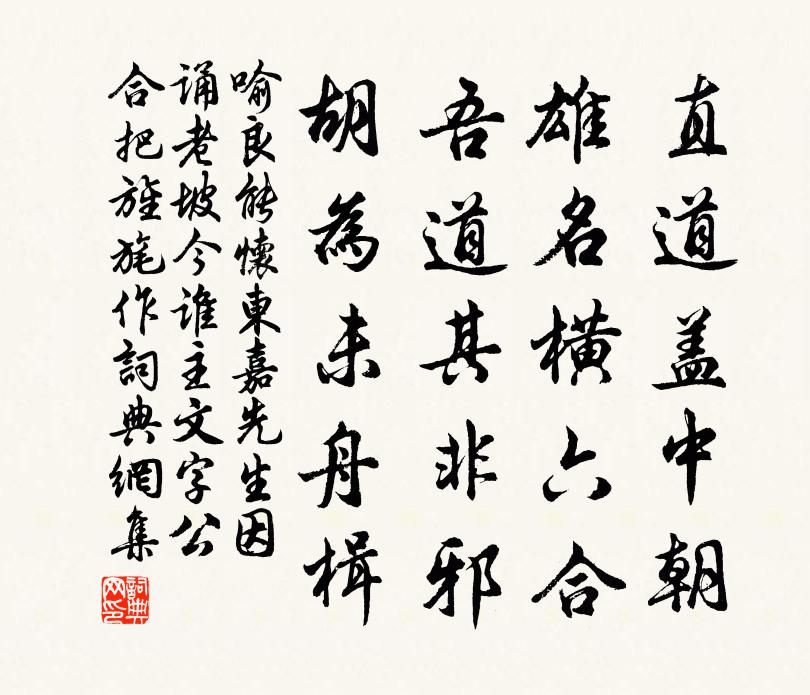 直道盖中朝
雄名橫六合
吾道其非邪
胡為未舟楫
喻良能懷東嘉先生因
誦老坡今誰主文字公
合把旌旄作詞典網集
詞典網印